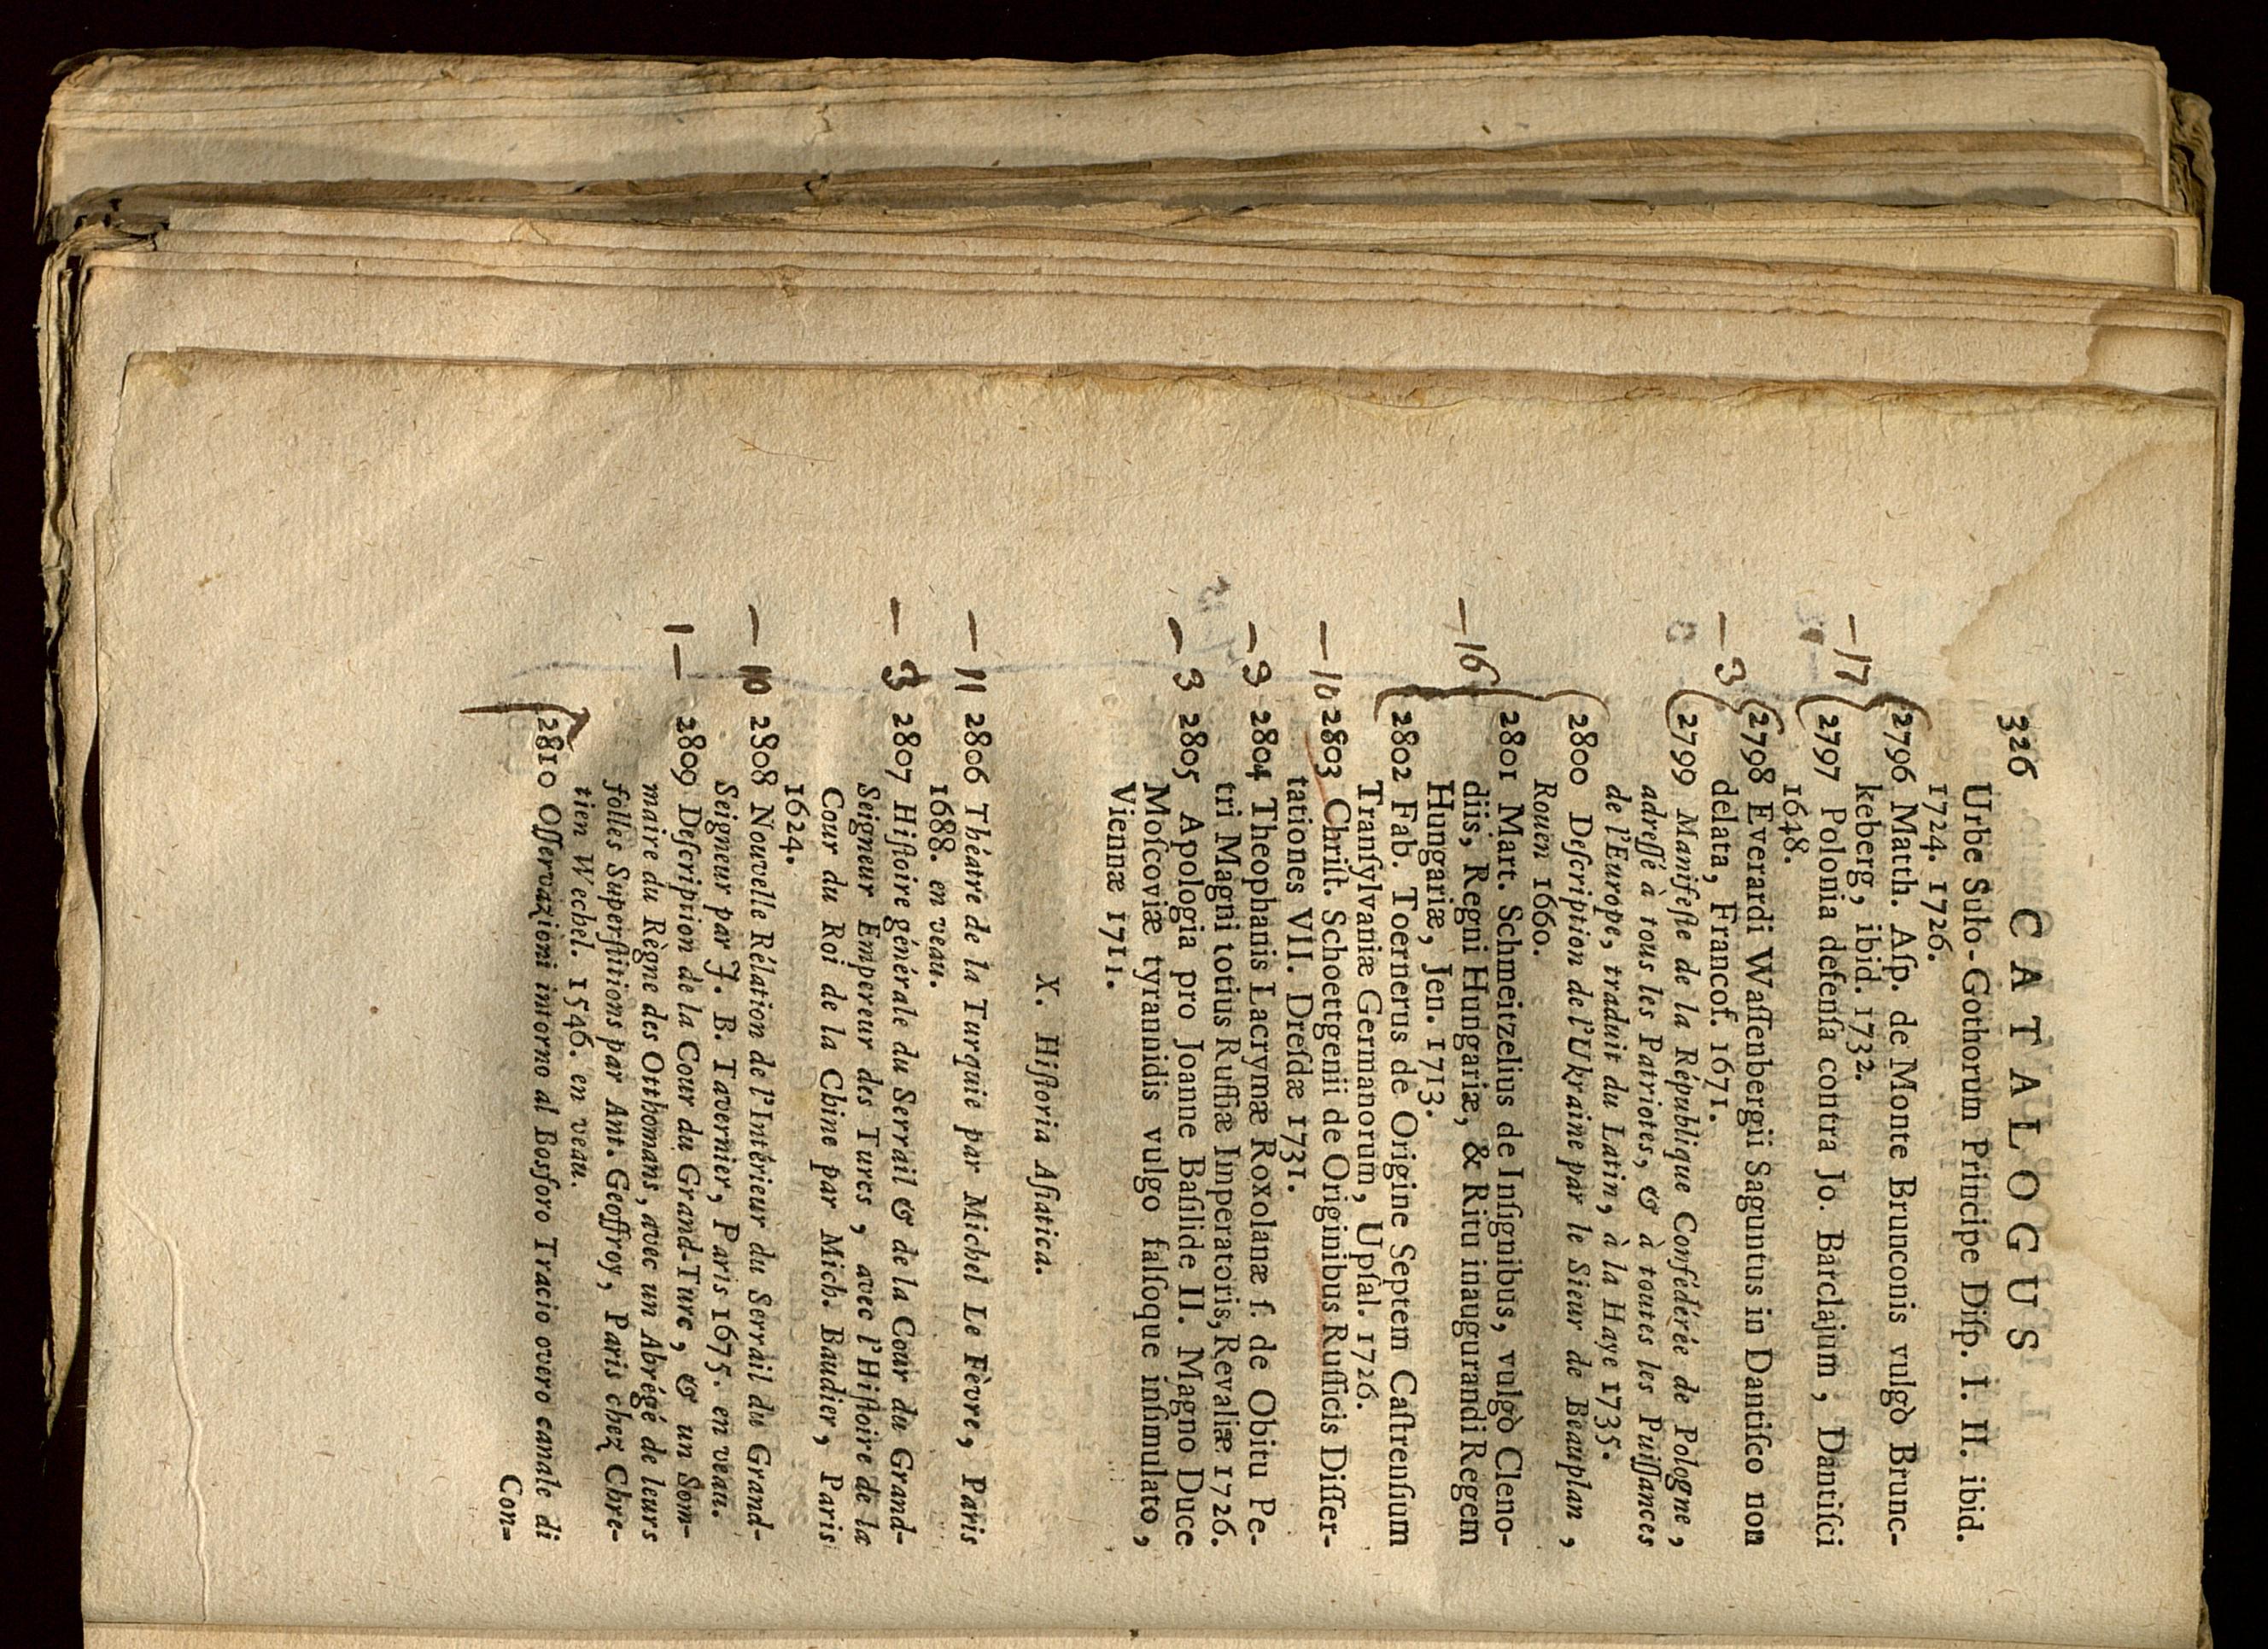 326 CATALOGUS
Urbe Suło-Gothorum Principe Diſp. I. II. ibid.
1724. 1726.
—17 2796 Matth. Aſp. de Monte Brunconis vulgò Brunc-
keberg, ibid. 1732.
2797 Polonia defenſa contra Jo. Barclajum, Dantiſci
1648.
—3 2798 Everardi Waſſenbergii Saguntus in Dantiſco non
delata, Francof. 1671.
2799 Manifeſte de la République Confédérée de Pologne,
adreſſé à tous les Patriotes, & à toutes les Puiſſances
de l'Europe, traduit du Latin, à la Haye 1735.
2800 Deſcription de l'Ukraine par le Sieur de Beauplan,
Rouen 1660.
—16 2801 Mart. Schmeitzelius de Inſignibus, vulgò Cleno-
diis, Regni Hungariæ, & Ritu inaugurandi Regem
Hungariæ, Jen. 1713.
2802 Fab. Toernerus de Origine Septem Caſtrenſium
Tranſylvaniæ Germanorum, Upſal. 1726.
—10 2803 Chriſt. Schoettgenii de Originibus Ruſſicis Diſſer-
tationes VII. Dreſdæ 1731.
—9 2804 Theophanis Lacrymæ Roxolanæ ſ. de Obitu Pe-
tri Magni totius Ruſſiæ Imperatoris, Revaliæ 1726.
—3 2805 Apologia pro Joanne Baſilide II. Magno Duce
Moſcoviæ tyrannidis vulgo falſoque inſimulato,
Viennæ 1711.
X. Hiſtoria Aſiatica.
—11 2806 Théatre de la Turquie par Michel Le Fèvre, Paris
1688. en veau.
—3 2807 Hiſtoire générale du Serrail & de la Cour du Grand-
Seigneur Empereur des Turcs, avec l'Hiſtoire de la
Cour du Roi de la Chine par Mich. Baudier, Paris
1624.
—10 2808 Nouvelle Rélation de l'Intérieur du Serrail du Grand-
Seigneur par J. B. Tavernier, Paris 1675. en veau.
1— 2809 Deſcription de la Cour du Grand-Turc, & un Som-
maire du Règne des Otthomans, avec un Abrégé de leurs
folles Superſtitions par Ant. Geoffroy, Paris chez Chre-
tien Wechel. 1546. en veau.
2810 Oſſervazioni intorno al Bosforo Tracio overo canale di
Con-